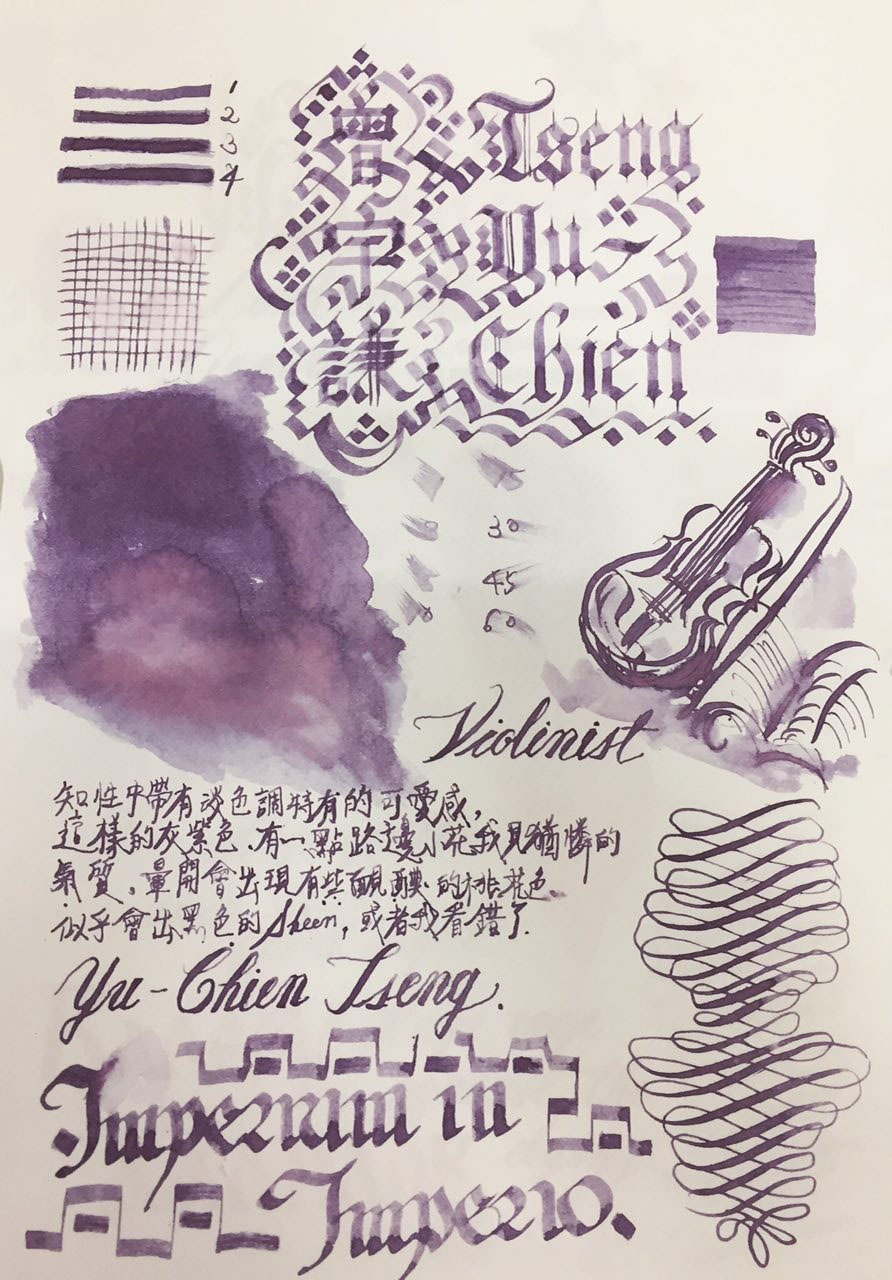 1
2
3
4
曾 Tseng
宇 Yu-
謙 Chien
30
45
60
Violinist
知性中帶有淡色調特有的可愛感,
這樣的灰紫色,有一點路邊小花我見猶憐的
氣質,暈開會出現有些靦腆的桃花色.
似乎會出黑色的Sheen,或者我看錯了.
Yu-Chien Tseng.
Imperium in
Imperio.